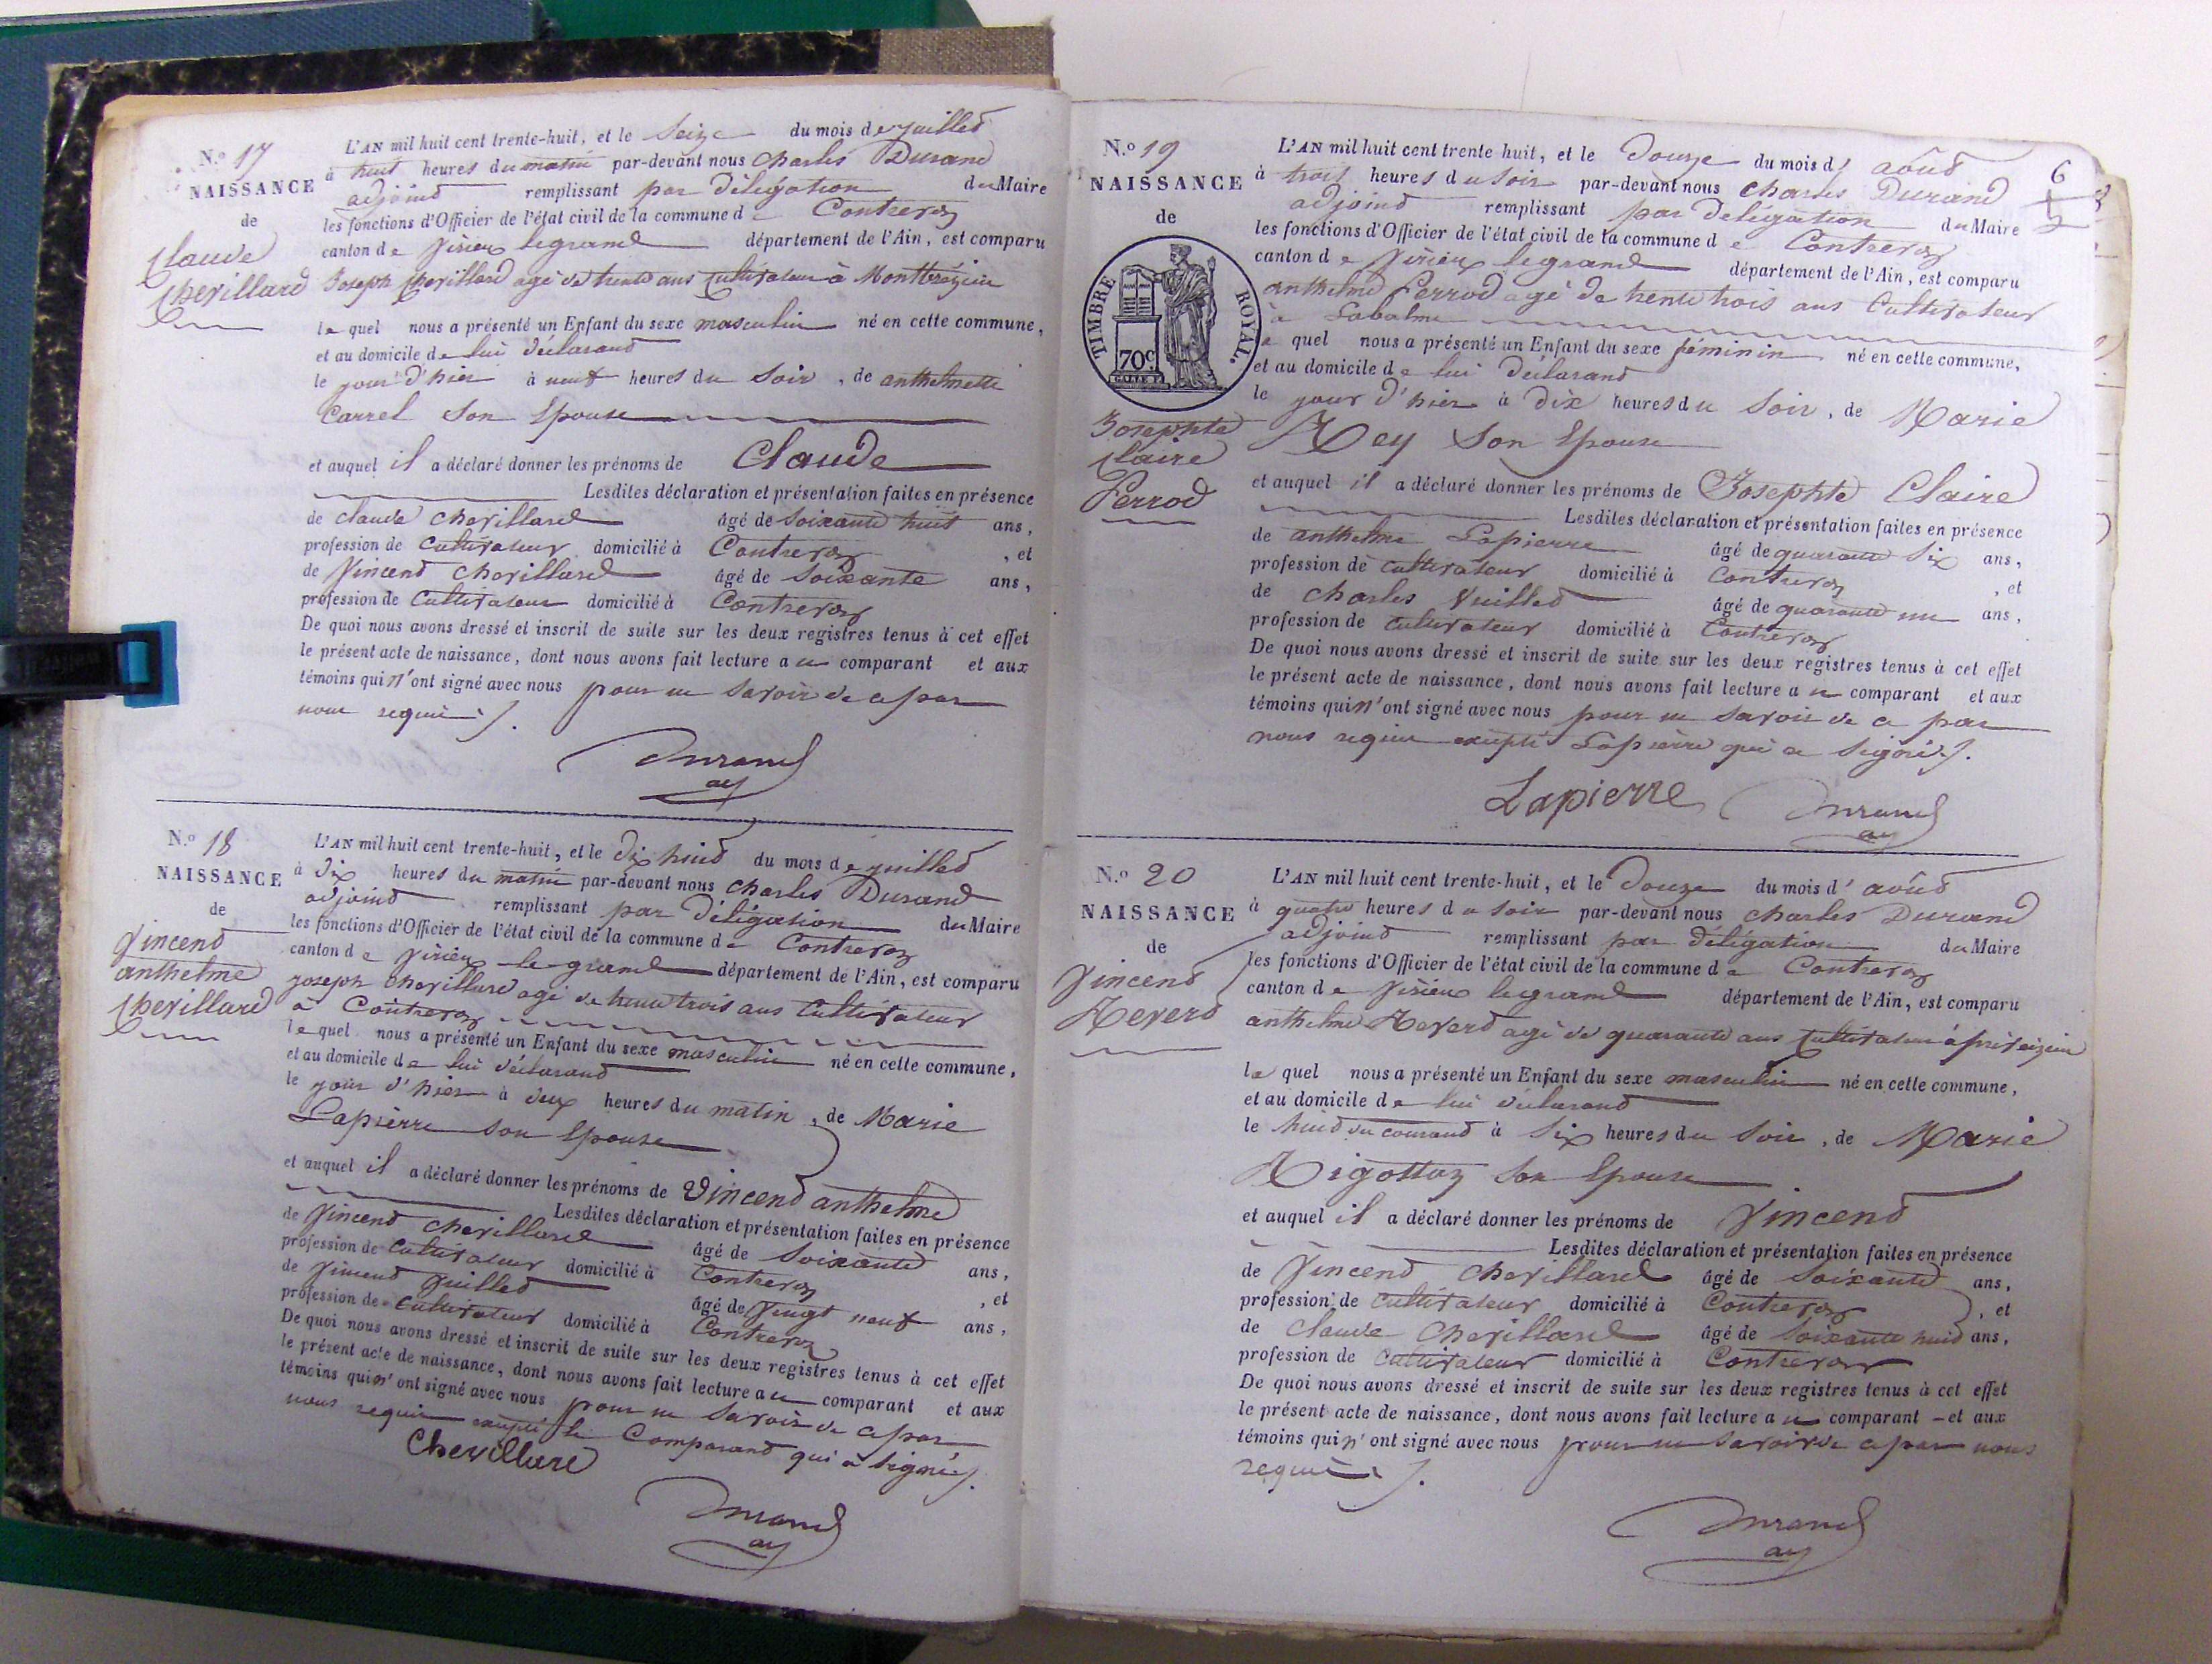 N.o 17
NAISSANCE
de
Claude
Chevillard
L'AN mil huit cent trente-huit, et le Seize du mois de juillet
à huit heures du matin par-devant nous Charles Durand
adjoind remplissant par Délégation du Maire
les fonctions d'Officier de l'état civil de la commune de Contrevoz
canton de Virieu legrand département de l'Ain, est comparu
Joseph Chevillard agé de trente ans Cultivateur à Montbreyzieu
le quel nous a présenté un Enfant du sexe masculin né en cette commune,
et au domicile de lui déclarand
le jour d'hier à neuf heures du Soir, de anthelmette
Carrel Son Epouse
et auquel il a déclaré donner les prénoms de Claude
Lesdites déclaration et présentation faites en présence
de Claude Chevillard âgé de Soixante huit ans,
profession de Cultivateur domicilié à Contrevoz, et
de Vincend Chevillard âgé de Soixante ans,
profession de Cultivateur domicilié à Contrevoz
De quoi nous avons dressé et inscrit de suite sur les deux registres tenus à cet effet
le présent acte de naissance, dont nous avons fait lecture au comparant et aux
témoins qui n'ont signé avec nous pour ne Savoir de ce par
nous requis ./.
Durand
adj
N.o 18
NAISSANCE
de
Vincend
anthelme
Chevillard
L'AN mil huit cent trente-huit, et le Dix huid du mois de juilled
à Dix heures du matin par-devant nous Charles Durand
adjoind remplissant par Délégation du Maire
les fonctions d'Officier de l'état civil de la commune de Contrevoz
canton de Virieu le grand département de l'Ain, est comparu
joseph Chevillard agé de trente trois ans Cultivateur
à Contrevoz
le quel nous a présenté un Enfant du sexe masculin né en cette commune,
et au domicile de lui déclarand
le jour d'hier à deux heures du matin, de Marie
Lapierre son Epouse
et auquel il a déclaré donner les prénoms de Vincend anthelme
Lesdites déclaration et présentation faites en présence
de Vincend Chevillard âgé de Soixante ans,
profession de Cultivateur domicilié à Contrevoz, et
de Vincend juilled âgé de Vingt neuf ans,
profession de Cultivateur domicilié à Contrevoz
De quoi nous avons dressé et inscrit de suite sur les deux registres tenus à cet effet
le présent acte de naissance, dont nous avons fait lecture au comparant et aux
témoins qui n'ont signé avec nous pour ne Savoir de ce par
nous requis excepté le Comparand qui a signé ./.
Chevillard
Durand
adj
6
N.o 19
NAISSANCE
de
TIMBRE ROYAL.
70c
Josephte
Claire
Perrod
L'AN mil huit cent trente huit, et le Douze du mois d' aoûd
à trois heures du Soir par-devant nous Charles Durand
adjoind remplissant par Délégation du Maire
les fonctions d'Officier de l'état civil de la commune de Contrevoz
canton de Virieu legrand département de l'Ain, est comparu
anthelme Perrod agé de trente trois ans Cultivateur
à Labalme
le quel nous a présenté un Enfant du sexe féminin né en cette commune,
et au domicile de lui Déclarand
le jour d'hier à Dix heures du Soir, de Marie
Rey Son Epouse
et auquel il a déclaré donner les prénoms de Josephte Claire
Lesdites déclaration et présentation faites en présence
de anthelme Lapierre âgé de quarante Six ans,
profession de Cultivateur domicilié à Contrevoz, et
de Charles Vuilled âgé de quarante un ans,
profession de Cultivateur domicilié à Contrevoz
De quoi nous avons dressé et inscrit de suite sur les deux registres tenus à cet effet
le présent acte de naissance, dont nous avons fait lecture au comparant et aux
témoins qui n'ont signé avec nous pour ne Savoir de ce par
nous requis excepté Lapierre qui a Signé ./.
Lapierre Durand
adj
N.o 20
NAISSANCE
de
Vincend
Reverd
L'AN mil huit cent trente-huit, et le Douze du mois d' aoûd
à quatre heures du Soir par-devant nous Charles Durand
adjoind remplissant par Délégation du Maire
les fonctions d'Officier de l'état civil de la commune de Contrevoz
canton de Virieu legrand département de l'Ain, est comparu
anthelme Reverd agé de quarante ans Cultivateur à preveizieu
le quel nous a présenté un Enfant du sexe masculin né en cette commune,
et au domicile de lui déclarand
le huid du courand à Six heures du Soir, de Marie
Rigottaz Son Epouse
et auquel il a déclaré donner les prénoms de Vincend
Lesdites déclaration et présentation faites en présence
de Vincend Chevillard âgé de Soixante ans,
profession de Cultivateur domicilié à Contrevoz, et
de Claude Chevillard âgé de Soixante huid ans,
profession de Cultivateur domicilié à Contrevoz
De quoi nous avons dressé et inscrit de suite sur les deux registres tenus à cet effet
le présent acte de naissance, dont nous avons fait lecture au comparant - et aux
témoins qui n'ont signé avec nous pour ne Savoir de ce par nous
requis ./.
Durand
adj